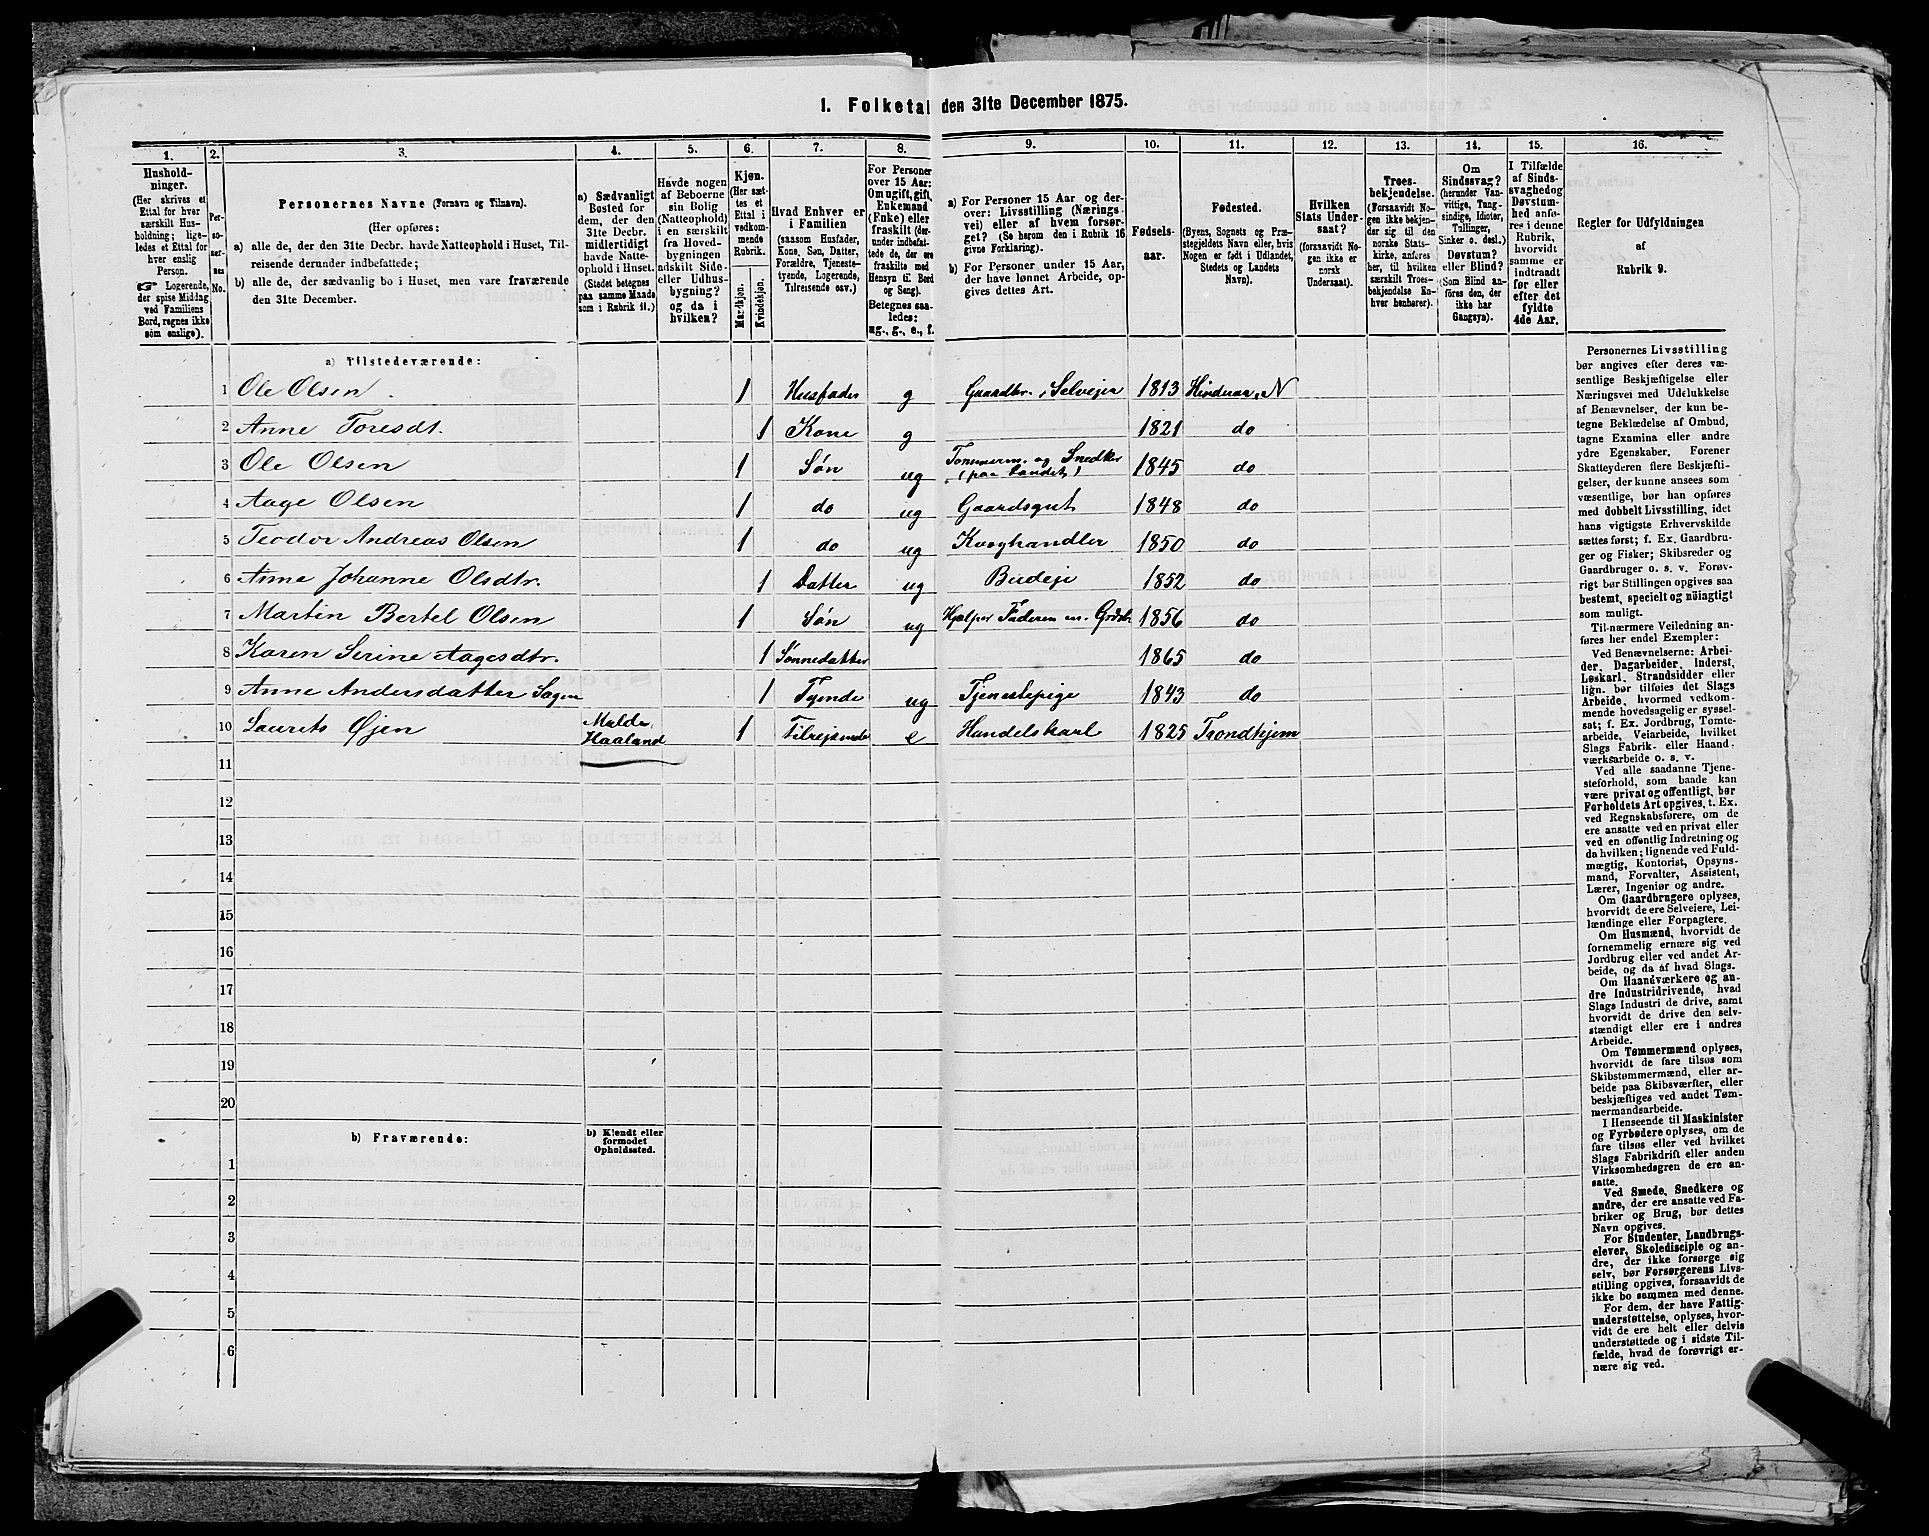 1. Folketal den 31te December 1875.
1. 2. 3. 4. 5. 6. 7. 8. 9. 10. 11. 12. 13. 14. 15. 16.
Hushold-
ninger.
(Her skrives et
Ettal for hver
særskilt Hus-
holdning; lige-
ledes et Ettal for
hver enslig
Person.
☞ Logerende,
der spise Middag
ved Familiens
Bord, regnes ikke
som enslige).
Per-
so-
ner-
nes
No.
Personernes Navne (Fornavn og Tilnavn).
(Her opføres:
a) alle de, der den 31te Decbr. havde Natteophold i Huset, Til-
reisende derunder indbefattede;
b) alle de, der sædvanlig bo i Huset, men vare fraværende
den 31te December.
a) Sædvanligt
Bosted for
dem, der den
31te Decbr.
midlertidigt
havde Natte-
ophold i Huset.
(Stedet betegnes
paa samme Maade
som i Rubrik 11.)
Havde nogen
af Beboerne
sin Bolig
(Natteophold)
i en særskilt
fra Hoved-
bygningen
adskilt Side-
eller Udhus-
bygning?
og da i
hvilken?
Kjøn.
(Her sæt-
tes et
Ettal i
vedkom-
mende
Rubrik.
Mandkjøn.
Kvindekjøn.
Hvad Enhver er
i Familien
(saasom Husfader,
Kone, Søn, Datter,
Forældre, Tjeneste-
tyende, Logerende,
Tilreisende osv.)
For Personer
over 15 Aar:
Om ugift, gift,
Enkemand
(Enke) eller
fraskilt (der-
under indbefat-
tede de, der ere
fraskilte med
Hensyn til Bord
og Seng).
Betegnes saa-
ledes:
ug., g., e., f.
a) For Personer 15 Aar og der-
over: Livsstilling (Nærings-
vei) eller af hvem forsør-
get? (Se herom den i Rubrik 16
givne Forklaring).
b) For Personer under 15 Aar,
der have lønnet Arbeide, op-
gives dettes Art.
Fødsels-
aar.
Fødested.
(Byens, Sognets og Præ-
stegjeldets Navn eller, hvis
Nogen er født i Udlandet,
Stedets og Landets
Navn).
Hvilken
Stats Under-
saat?
(forsaavidt No-
gen ikke er
norsk
Undersaat).
Troes-
bekjendelse.
(Forsaavidt No-
gen ikke bekjen-
der sig til den
norske Stats-
kirke, anføres
her, til hvilken
særskilt Troes-
bekjendelse En-
hver henhører).
Om
Sindssvag?
(herunder Van-
vittige, Tung-
sindige, Idioter,
Tullinger,
Sinker o. desl.)
Døvstum?
eller Blind?
(Som Blind an-
føres den, der
ikke har
Gangsyn).
I Tilfælde
af Sinds-
svaghed og
Døvstum-
hed anfø-
res i denne
Rubrik,
hvorvidt
samme er
indtraadt
før eller
efter det
fyldte
4de Aar.
Regler for Udfyldningen
af
Rubrik 9.
a) Tilstedeværende:
1 Ole Olsen 1 Husfader g Gaardbr. Selveier 1813 Hinderaa, N
2 Anne Toresdt. 1 Kone g 1821 do
3 Ole Olsen 1 Søn ug Tømmerm. og Snedker (paa Landet) 1845 do
4 Aage Olsen 1 do ug Gaardsgut 1848 do
5 Teodor Andreas Olsen 1 do ug Kvæghandler 1850 do
6 Anne Johanne Olsdtr. 1 Datter ug Budeje 1852 do
7 Martin Bertel Olsen 1 Søn ug Hjælper Faderen m. Grdsbr. 1856 do
8 Karen Serine Aagesdtr. 1 Sønnedatter 1865 do
9 Anne Andersdatter Sagen 1 Tyende ug Tjenestepige 1843 do
10 Laurits Øjen Malde, Haaland 1 Tilrejsende e Handelskarl 1825 Trondhjem
11
12
13
14
15
16
17
18
19
20
b) Fraværende:
b) Kjendt eller
formodet
Opholdssted.
1
2
3
4
5
6
Personernes Livsstilling
bør angives efter deres væ-
sentlige Beskjæftigelse eller
Næringsvei med Udelukkelse
af Benævnelser, der kun be-
tegne Beklædelse af Ombud,
tagne Examina eller andre
ydre Egenskaber. Forener
Skatteyderen flere Beskjæfti-
gelser, der kunne ansees som
væsentlige, bør han opføres
med dobbelt Livsstilling, idet
hans vigtigste Erhvervskilde
sættes først; f. Ex. Gaardbru-
ger og Fisker; Skibsreder og
Gaardbruger o. s. v. Forøv-
rigt bør Stillingen opgives saa
bestemt, specielt og nöiagtigt
som muligt.
Til nærmere Veiledning an-
føres her endel Exempler:
Ved Benævnelserne: Arbei-
der, Dagarbeider, Inderst,
Løskarl, Strandsidder eller
lign. bør tilføies det Slags
Arbeide, hvormed vedkom-
mende hovedsagelig er syssel-
sat; f. Ex. Jordbrug, Tomte-
arbeide, Veiarbeide, hvilket
Slags Fabrik- eller Haand-
værksarbeide o. s. v.
Ved alle saadanne Tjene-
steforhold, som baade kan
være privat og offentligt, bør
Forholdets Art opgives, t. Ex.
ved Regnskabsførere, om de
ere ansatte ved en privat eller
ved en offentlig Indretning og
da hvilken; lignende ved Fuld-
mægtig, Kontorist, Opsyns-
mand, Forvalter, Assistent,
Lærer, Ingeniør og andre.
Om Gaardbrugere oplyses,
hvorvidt de ere Selveiere, Lei-
lændinge eller Forpagtere.
Om Husmænd, hvorvidt de
fornemmelig ernære sig ved
Jordbrug eller ved andet Ar-
beide, og da af hvad Slags.
Om Haandværkere og an-
dre Industridrivende, hvad
Slags Industri de drive, samt
hvorvidt de drive den selv-
stændigt eller ere i andres
Arbeide.
Om Tømmermænd oplyses,
hvorvidt de fare tilsøs som
Skibstømmermænd, eller ar-
beide paa Skibsværfter, eller
beskjæftiges ved andet Tøm-
mermandsarbeide.
I Henseende til Maskinister
og Fyrbødere oplyses, om de
fare tilsøs eller ved hvilket
Slags Fabrikdrift eller anden
Virksomhedsgren de ere an-
satte.
Ved Smede, Snedkere og
andre, der ere ansatte ved Fa-
briker og Brug, bør dettes
Navn opgives.
For Studenter, Landbrugs-
elever, Skoledisciple og an-
dre, der ikke forsørge sig
selv, bør Forsørgerens Livs-
stilling opgives, forsaavidt de
ikke bo sammen med denne.
For dem, der have Fattig-
understøttelse, oplyses, hvor-
vidt de ere helt eller delvis
understøttede og i sidste Til-
fælde, hvad de forøvrigt er-
nære sig ved.